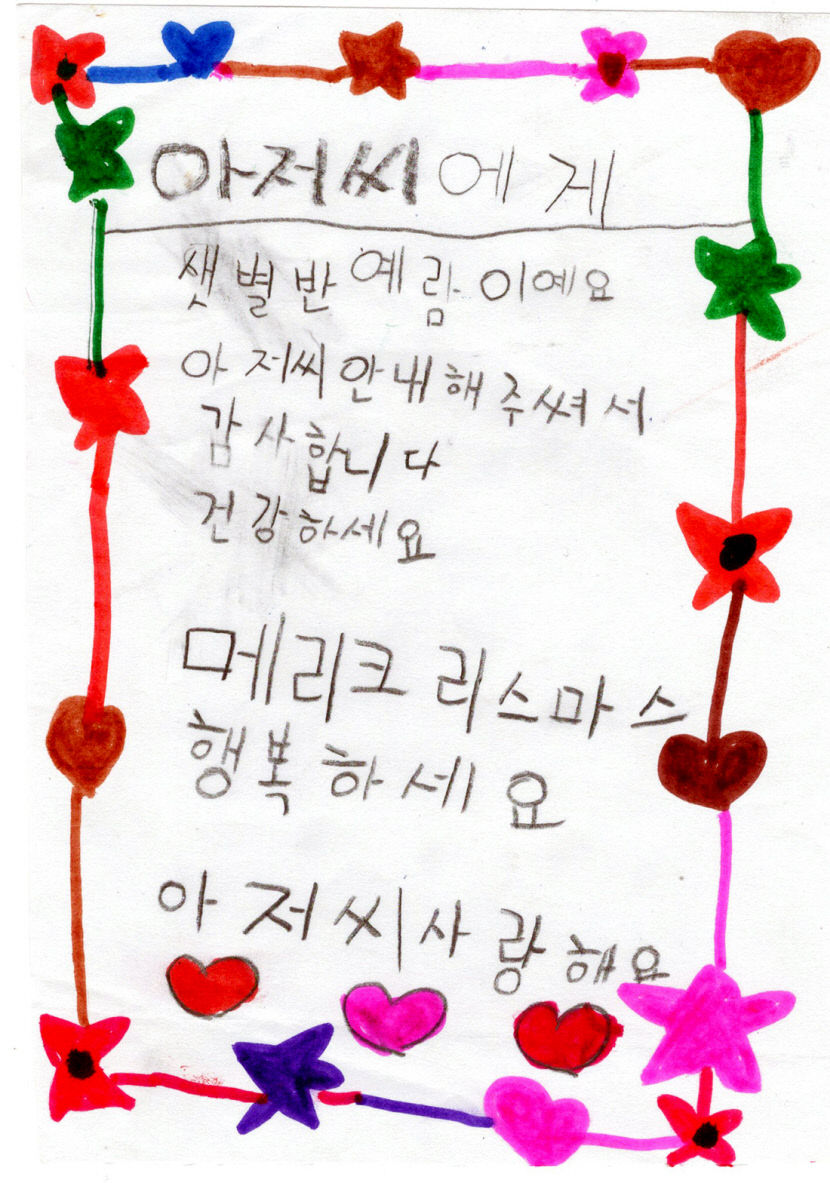 아저씨에게
샛별반 예람이예요
아저씨 안내해주셔서
감사합니다
건강하세요
메리크리스마스
행복하세요
아저씨사랑해요